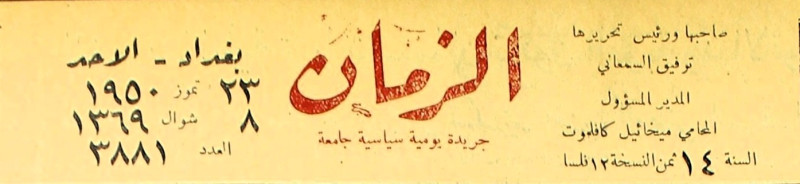 صاحبها ورئيس تحريرها
توفيق السمعاني
المدير المسؤول
المحامي ميخائيل كافلوت
السنة ١٤ ثمن النسخة ١٢ فلسا
الزمان
جريدة يومية سياسية جامعة
بغداد - الاحد
٢٣ تموز ١٩٥٠
٨ شوال ١٣٦٩
العدد ٣٨٨١